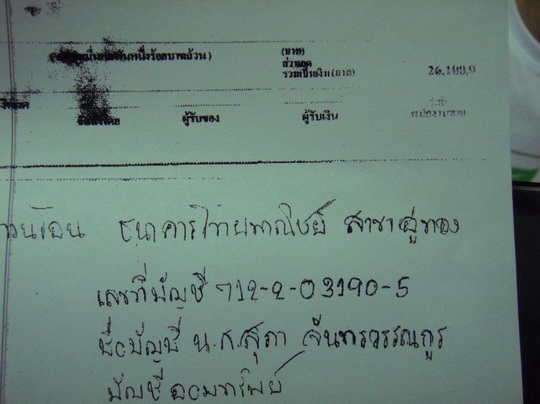 หนึ่งร้อยบาทถ้วน)
(บาท)
ส่วนลด
รวมเป็นเงิน(บาท) 26,100.0
ผู้รับของ ผู้รับเงิน
ธนาคารไทยพาณิชย์ สาขาอู่ทอง
เลขที่บัญชี 712-2-03190-5
ชื่อบัญชี น.ส.สุภา จันทรวรรณกูร
บัญชี ออมทรัพย์